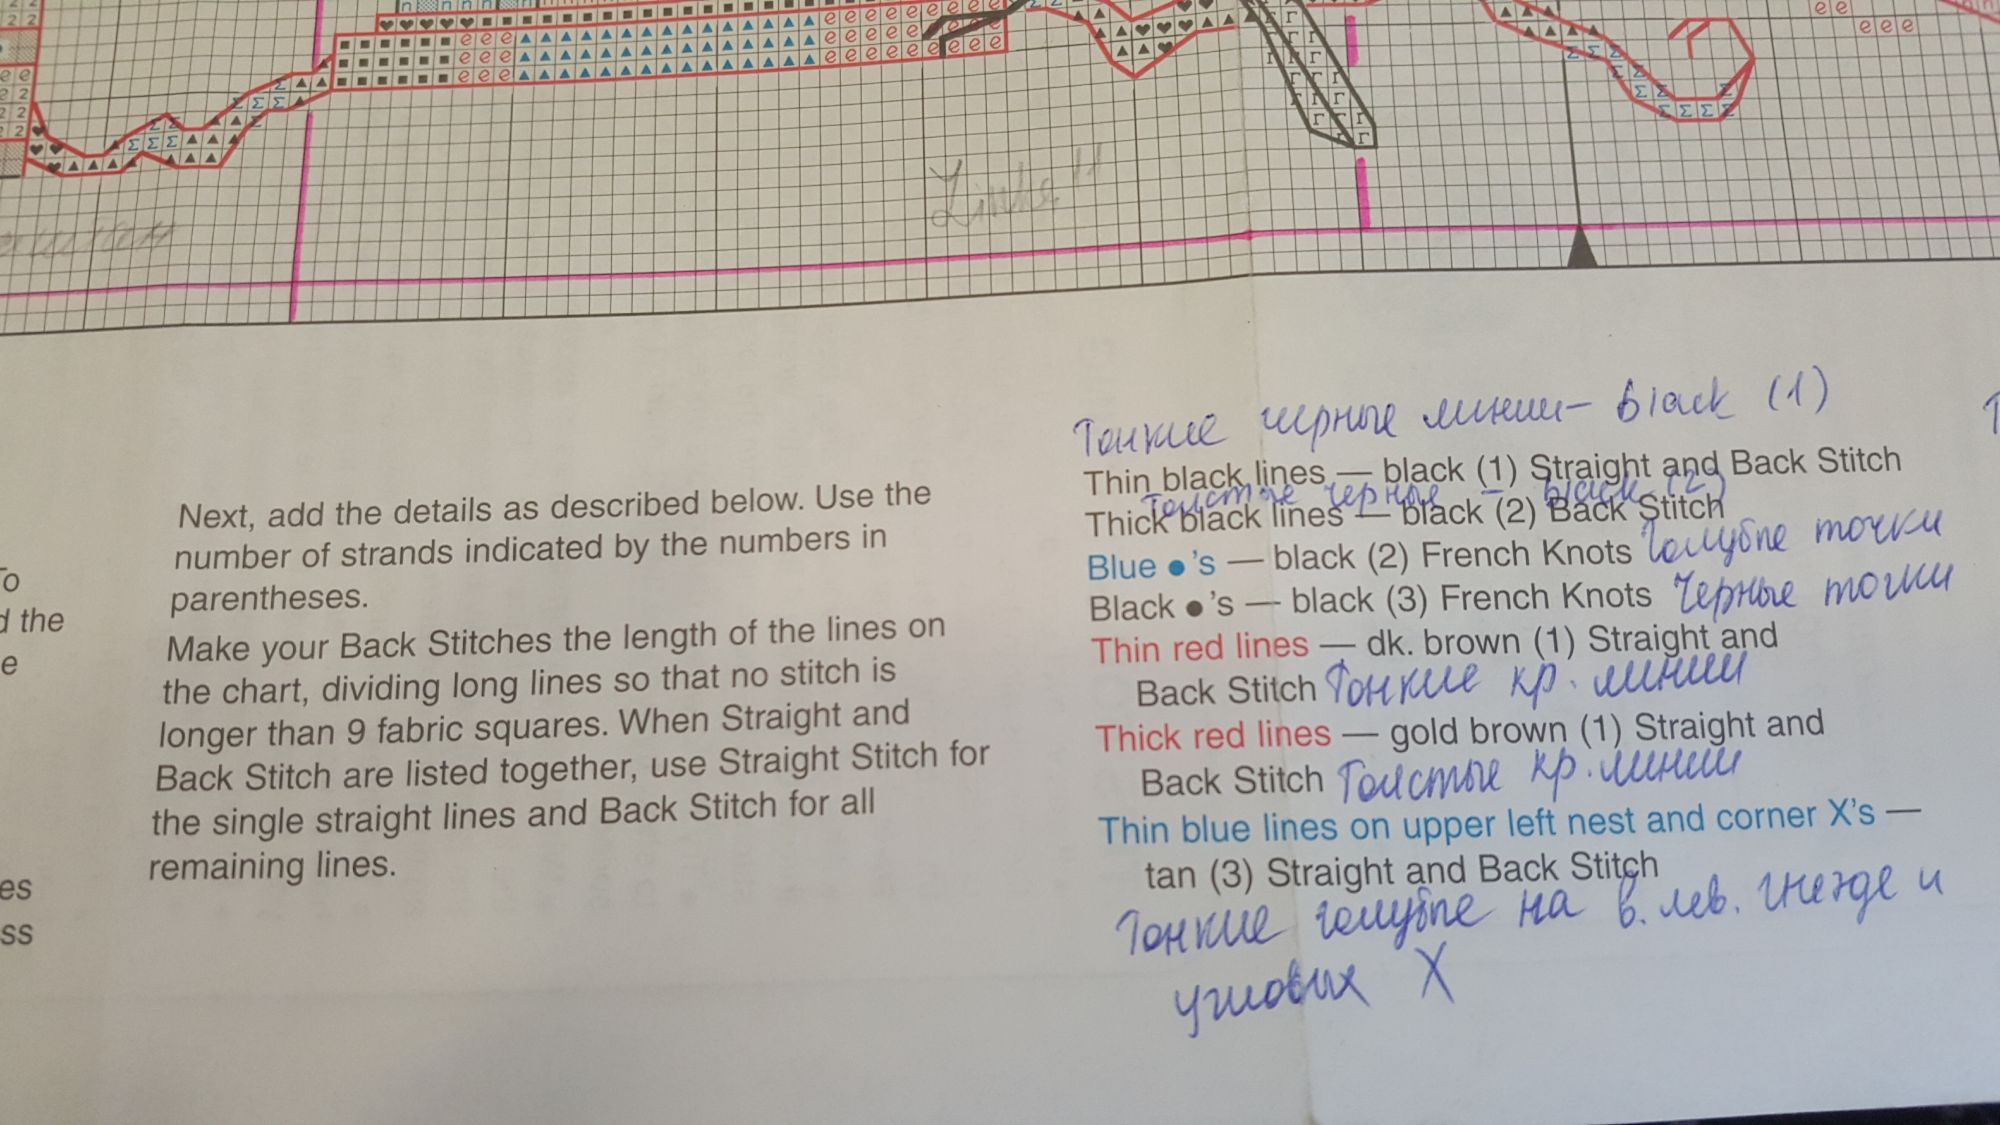 To
d the
e
es
ss
Next, add the details as described below. Use the
number of strands indicated by the numbers in
parentheses.
Make your Back Stitches the length of the lines on
the chart, dividing long lines so that no stitch is
longer than 9 fabric squares. When Straight and
Back Stitch are listed together, use Straight Stitch for
the single straight lines and Back Stitch for all
remaining lines.
Тонкие черные линии – black (1)
Thin black lines — black (1) Straight and Back Stitch
Толстые черные – black (2)
Thick black lines — black (2) Back Stitch
Blue ●'s — black (2) French Knots Голубые точки
Black ●'s — black (3) French Knots Черные точки
Thin red lines — dk. brown (1) Straight and
Back Stitch Тонкие кр. линии
Thick red lines — gold brown (1) Straight and
Back Stitch Толстые кр. линии
Thin blue lines on upper left nest and corner X's —
tan (3) Straight and Back Stitch
Тонкие голубые на в. лев. гнезде и
угловых X